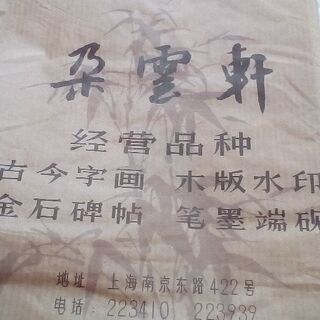 朵雲軒
经营品种
古今字画 木版水印
金石碑帖 笔墨端砚
地址：上海南京东路422号
电话：223410 223939